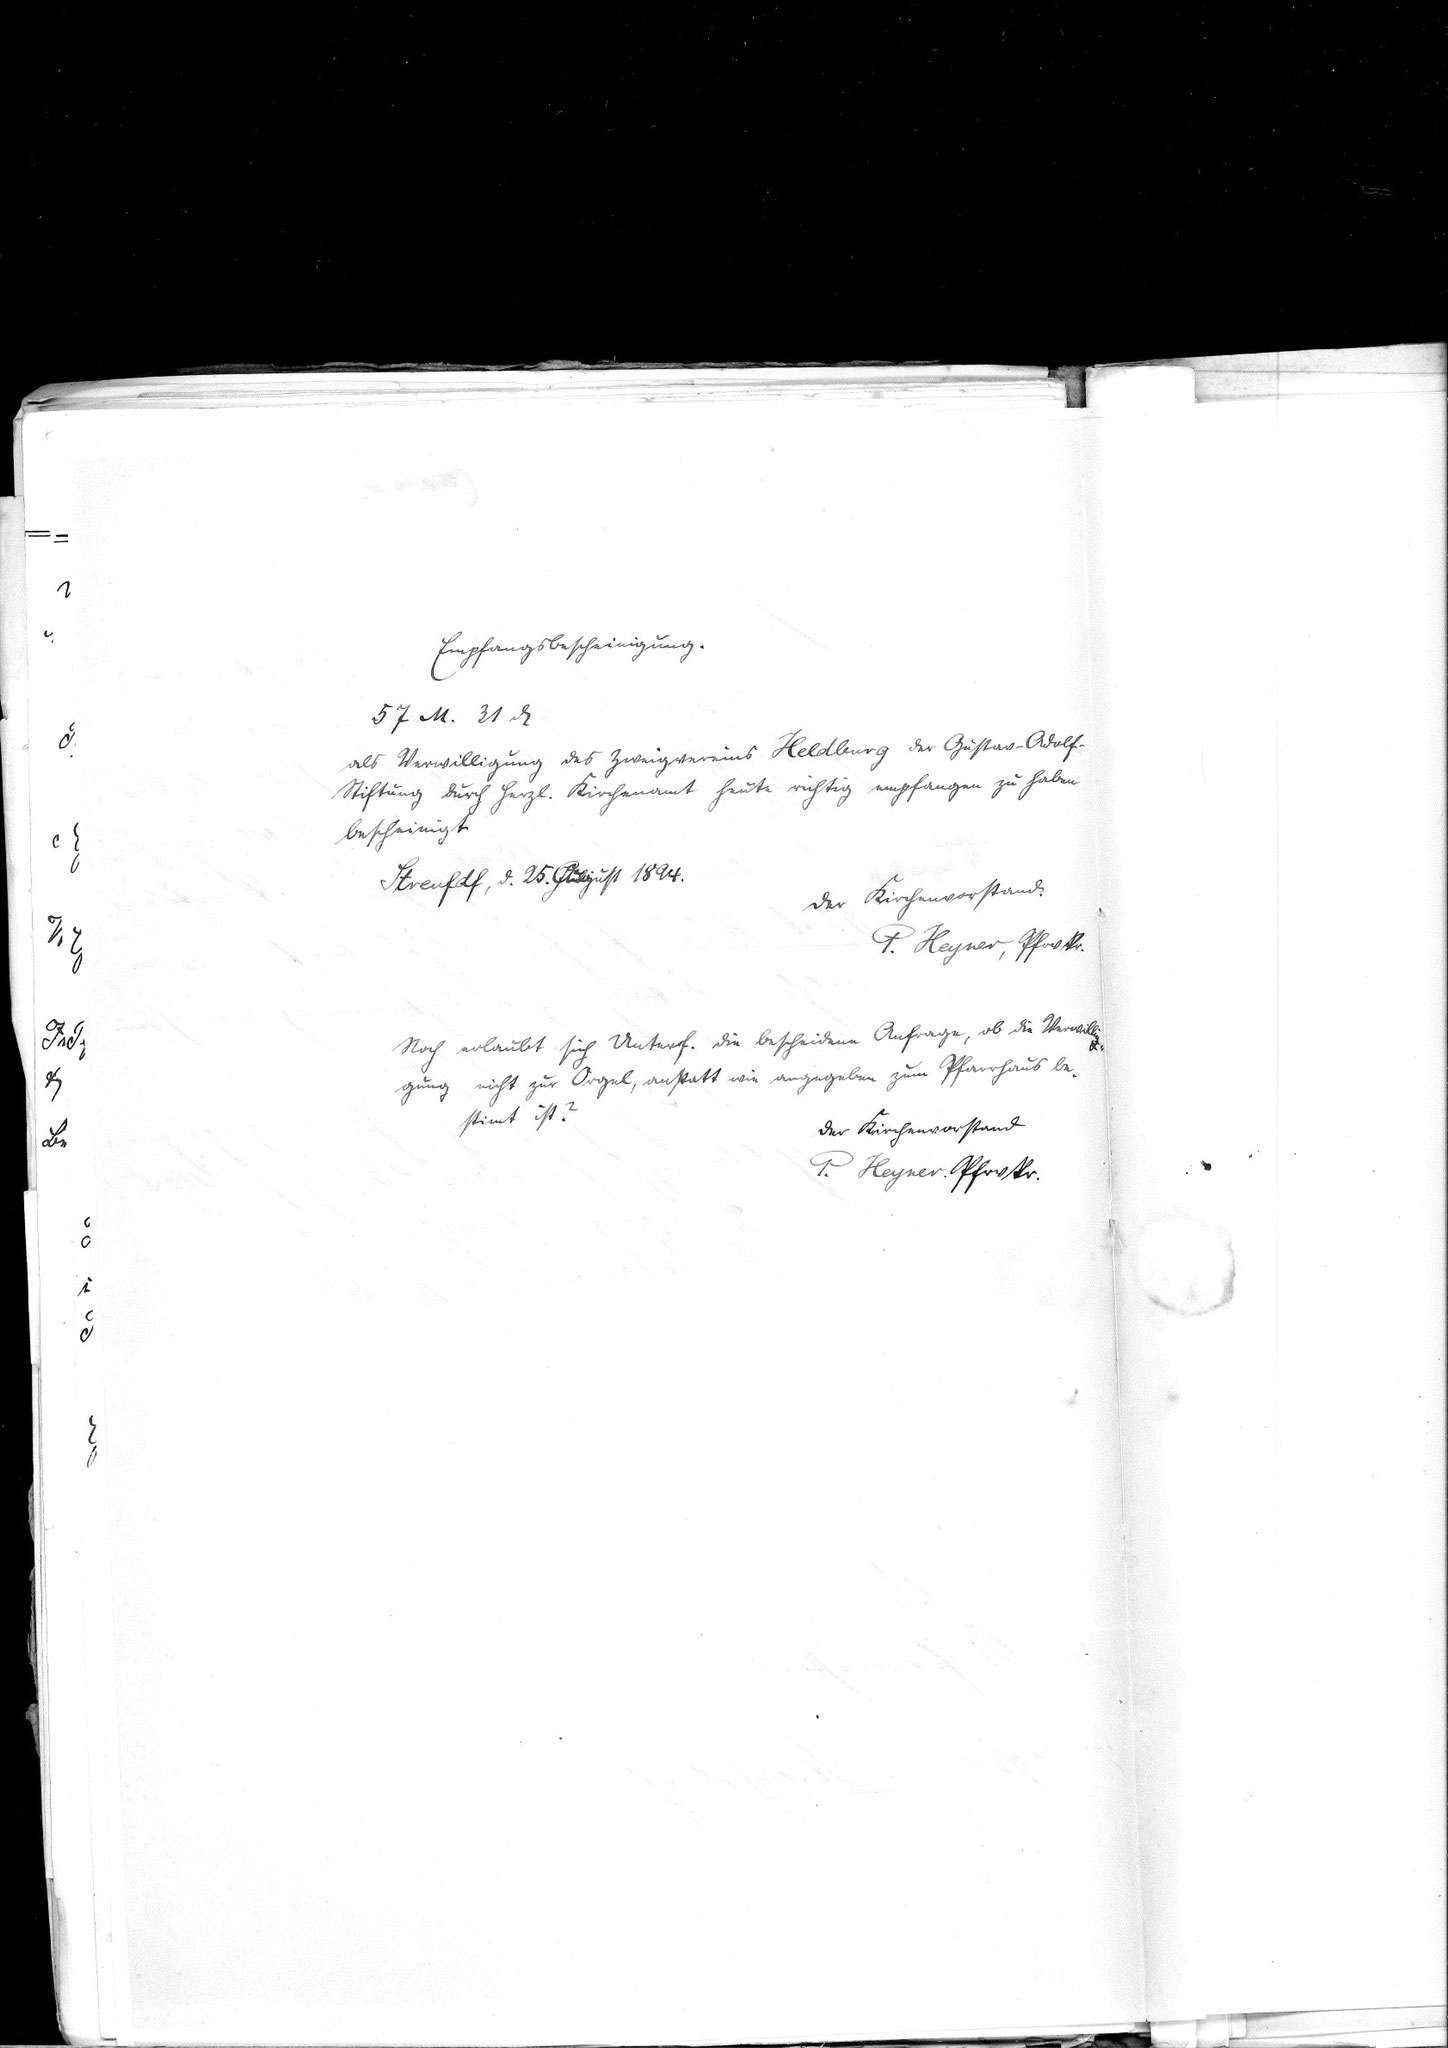 Empfangsbescheinigung.
57 M. 31 ₰
als Verwilligung des Zweigvereins Heldburg der Gustav-Adolf-
Stiftung durch Herzl. Kirchenamt heute richtig empfangen zu haben
bescheinigt
Streufdf, d. 25. August 1894.
der Kirchenvorstand.
P. Heyner, Pfrvkr.
Noch erlaubt sich Unterz. die bescheidene Anfrage, ob die Verwilli-
gung nicht zur Orgel, anstatt wie angegeben zum Pfarrhaus be-
stimt ist?
der Kirchenvorstand
P. Heyner. Pfrvkr.